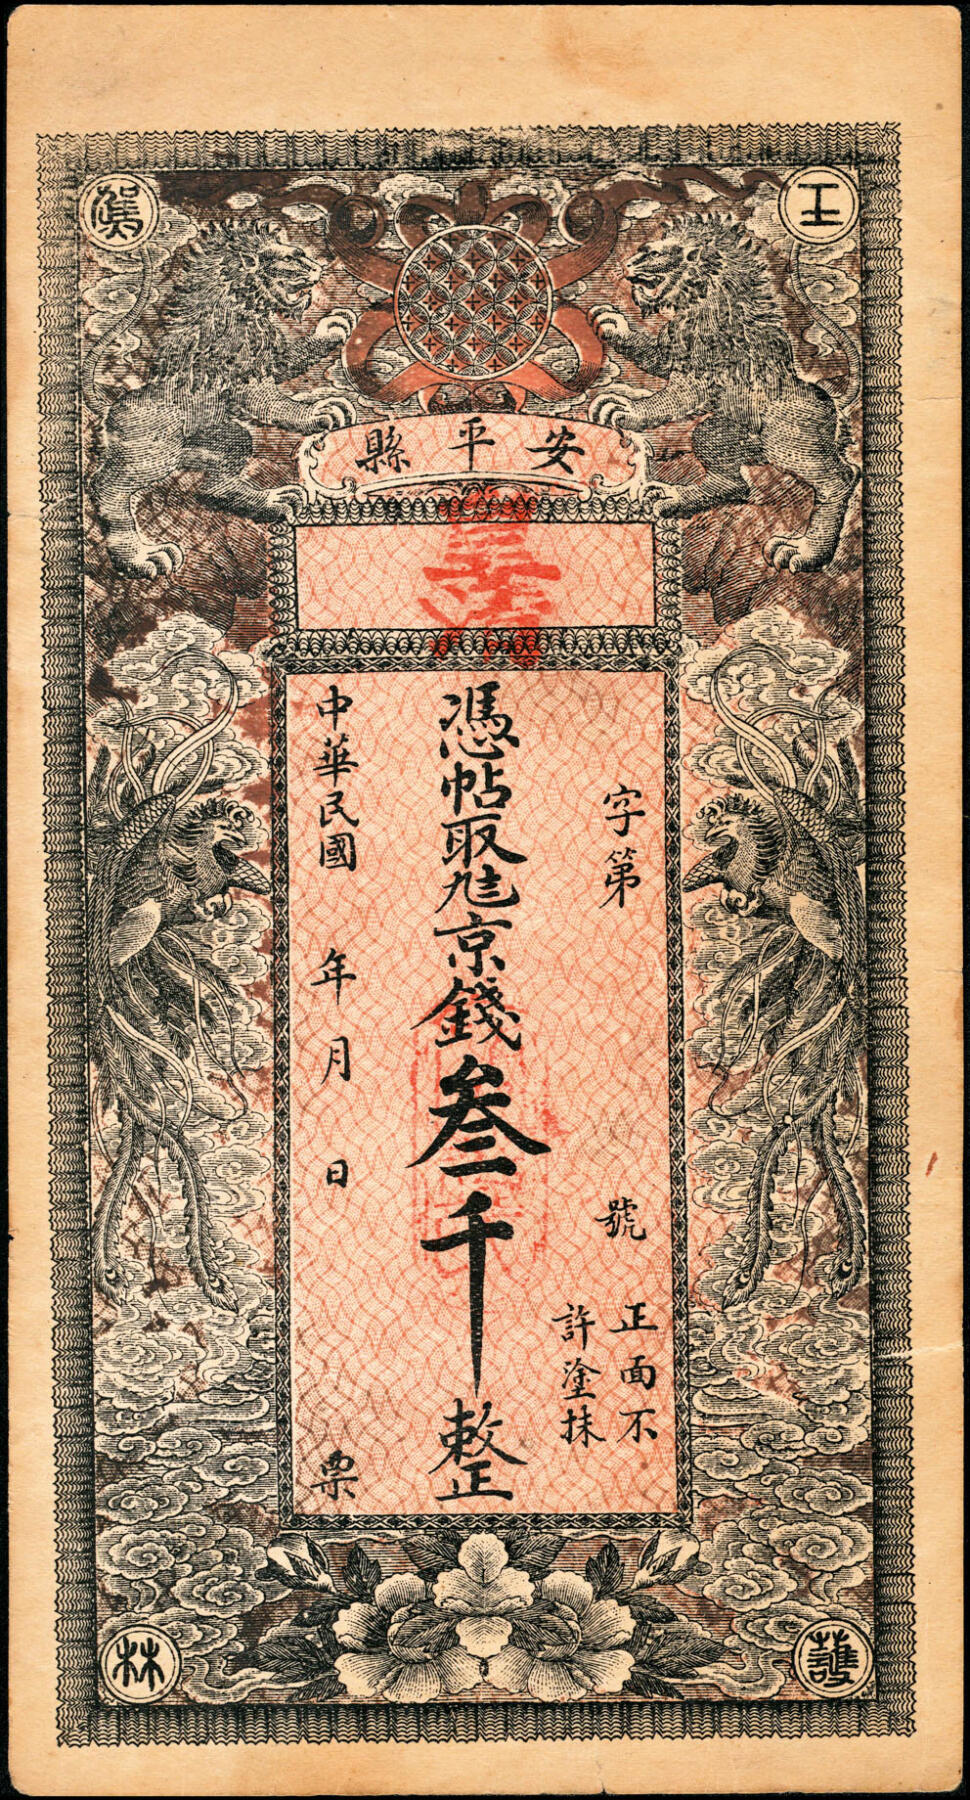 安平縣
字第 號
正面不
許塗抹
憑帖取九三京錢叁千整
中華民國 年 月 日 票
護
林